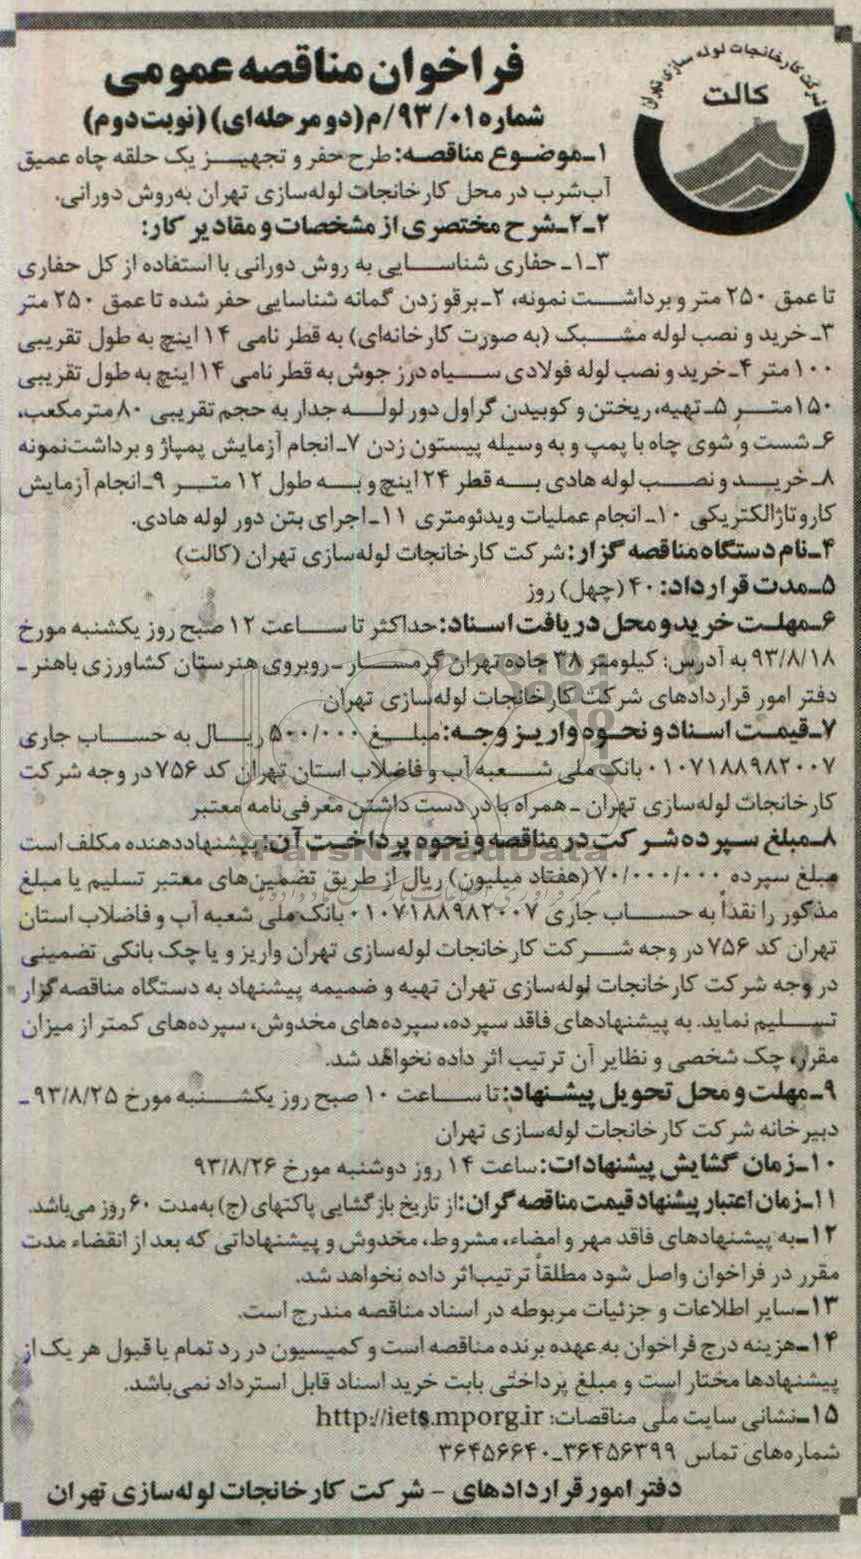 شرکت کارخانجات لوله سازی تهران
کالت
فراخوان مناقصه عمومی
شماره ۹۳/۰۱/م(دو مرحله‌ای) (نوبت دوم)
۱ـموضـوع مناقصـه: طرح حفر و تجهیـز یک حلقه چاه عمیق
آب‌شرب در محل کارخانجات لوله‌سازی تهران به‌روش دورانی.
۲ـ۲ـشرح مختصری از مشخصات و مقادیر کار:
۳ـ۱ـ حفاری شناسـایی به روش دورانی با استفاده از کل حفاری
تا عمق ۲۵۰ متر و برداشـت نمونه، ۲ـ برقو زدن گمانه شناسایی حفر شده تا عمق ۲۵۰ متر
۳ـ خرید و نصب لوله مشـبک (به صورت کارخانه‌ای) به قطر نامی ۱۴ اینچ به طول تقریبی
۱۰۰ متر ۴ـ خرید و نصب لوله فولادی سـیاه درز جوش به قطر نامی ۱۴ اینچ به طول تقریبی
۱۵۰متـر ۵ـ تهیه، ریختن و کوبیدن گراول دور لولـه جدار به حجم تقریبی ۸۰ مترمکعب،
۶ـ شست و شوی چاه با پمپ و به وسیله پیستون زدن ۷ـ انجام آزمایش پمپاژ و برداشت‌نمونه
۸ـ خریـد و نصـب لوله هادی بـه قطر ۲۴ اینچ و بـه طول ۱۲ متـر ۹ـ انجام آزمایش
کاروتاژالکتریکی ۱۰ـ انجام عملیات ویدئومتری ۱۱ـ اجرای بتن دور لوله هادی.
۴ـنام دستگاه مناقصه گزار: شرکت کارخانجات لوله‌سازی تهران (کالت)
۵ـمدت قرارداد: ۴۰ (چهل) روز
۶ـمهلـت خریـد و محل دریافت اسـناد: حداکثر تا سـاعت ۱۲ صبح روز یکشنبه مورخ
۹۳/۸/۱۸ به آدرس: کیلومتر ۳۸ جاده تهران گرمسـار ـ روبروی هنرستان کشاورزی باهنر ـ
دفتر امور قراردادهای شرکت کارخانجات لوله‌سازی تهران
۷ـقیمـت اسـناد و نحـوه واریـز وجـه: مبلـغ ۵۰۰/۰۰۰ ریـال به حسـاب جاری
۰۱۰۷۱۸۸۹۸۲۰۰۷ بانک ملی شـعبه آب و فاضلاب استان تهران کد ۷۵۶ در وجه شرکت
کارخانجات لوله‌سازی تهران ـ همراه با در دست داشتن معرفی‌نامه معتبر
۸ـمبلغ سـپرده شـرکت در مناقصه و نحوه پرداخـت آن: پیشنهاددهنده مکلف است
مبلغ سپرده ۷۰/۰۰۰/۰۰۰ (هفتاد میلیون) ریال از طریق تضمین‌های معتبر تسلیم یا مبلغ
مذکور را نقداً به حسـاب جاری ۰۱۰۷۱۸۸۹۸۲۰۰۷ بانک ملی شعبه آب و فاضلاب استان
تهران کد ۷۵۶ در وجه شـرکت کارخانجات لوله‌سازی تهران واریز و یا چک بانکی تضمینی
در وجه شرکت کارخانجات لوله‌سازی تهران تهیه و ضمیمه پیشنهاد به دستگاه مناقصه گزار
تسـلیم نماید. به پیشنهادهای فاقد سپرده، سپرده‌های مخدوش، سپرده‌های کمتر از میزان
مقرر، چک شخصی و نظایر آن ترتیب اثر داده نخواهد شد.
۹ـمهلت و محل تحویل پیشـنهاد: تا سـاعت ۱۰ صبح روز یکشـنبه مورخ ۹۳/۸/۲۵ ـ
دبیرخانه شرکت کارخانجات لوله‌سازی تهران
۱۰ـزمان گشایش پیشنهادات: ساعت ۱۴ روز دوشنبه مورخ ۹۳/۸/۲۶
۱۱ـزمان اعتبار پیشنهاد قیمت مناقصه گران: از تاریخ بازگشایی پاکتهای (ج) به‌مدت ۶۰ روز می‌باشد.
۱۲ـبه پیشنهادهای فاقد مهر و امضاء، مشروط، مخدوش و پیشنهاداتی که بعد از انقضاء مدت
مقرر در فراخوان واصل شود مطلقاً ترتیب‌اثر داده نخواهد شد.
۱۳ـسایر اطلاعات و جزئیات مربوطه در اسناد مناقصه مندرج است.
۱۴ـهزینه درج فراخوان به عهده برنده مناقصه است و کمیسیون در رد تمام یا قبول هر یک از
پیشنهادها مختار است و مبلغ پرداختی بابت خرید اسناد قابل استرداد نمی‌باشد.
۱۵ـنشانی سایت ملی مناقصات: http://iets.mporg.ir
شماره‌های تماس ۳۶۴۵۶۳۹۹ـ۳۶۴۵۶۶۴۰
دفتر امور قراردادهای - شرکت کارخانجات لوله‌سازی تهران
ParsNamadData